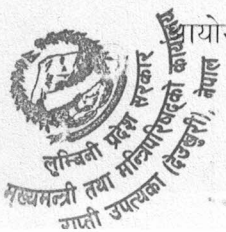 आयो
लुम्बिनी प्रदेश सरकार
मुख्यमन्त्री तथा मन्त्रिपरिषद्को कार्यालय
राप्ती उपत्यका (देउखुरी), नेपाल